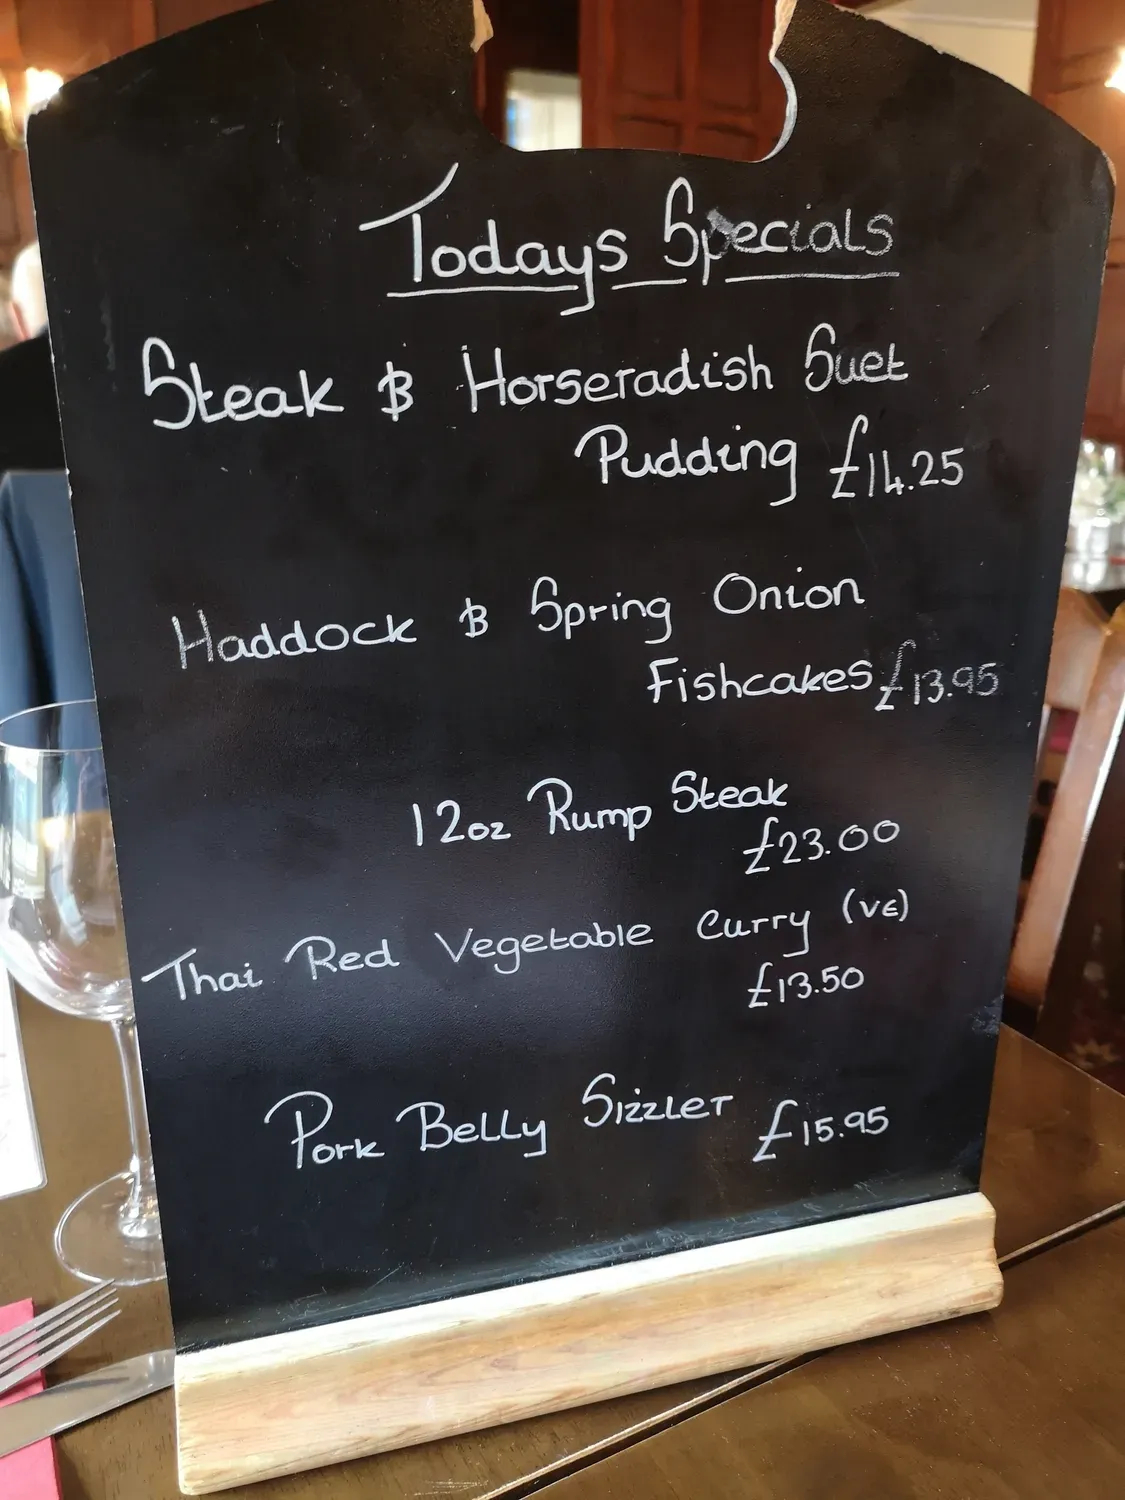 Todays Specials
Steak & Horseradish Suet
Pudding £14.25
Haddock & Spring Onion
Fishcakes £13.95
12oz Rump Steak
£23.00
Thai Red Vegetable Curry (VE)
£13.50
Pork Belly Sizzler £15.95